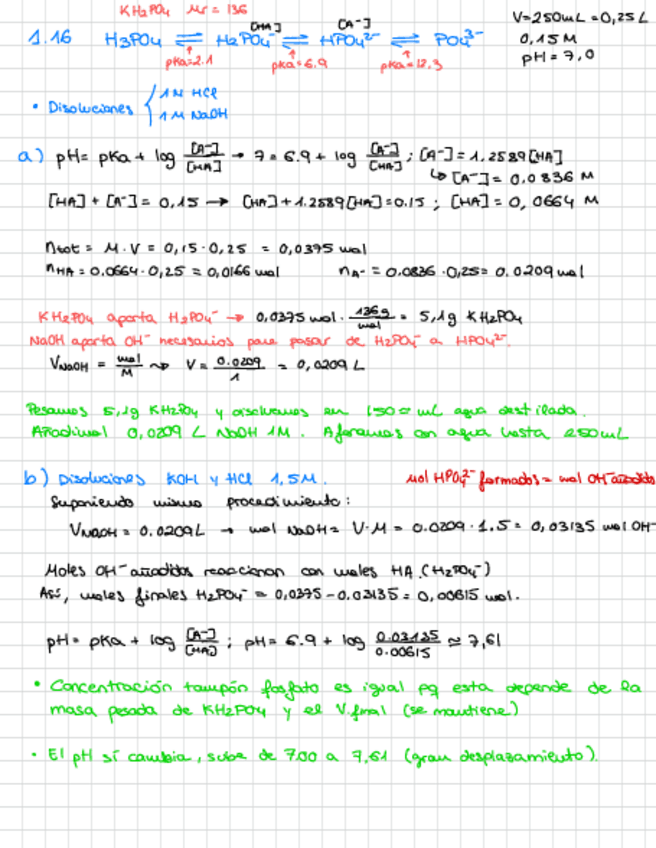 KH2PO4 Mr = 136
[HA] [A⁻] V=250mL = 0,25 L
1.16 H3PO4 ⇌ H2PO4⁻ ⇌ HPO4²⁻ ⇌ PO4³⁻ 0,15 M
pKa=2.1 pKa=6.9 pKa=12,3 pH = 7,0
• Disoluciones { 1 M HCl
1 M NaOH
a) pH = pKa + log [A⁻]/[HA] → 7 = 6.9 + log [A⁻]/[HA] ; [A⁻] = 1.2589 [HA]
↳ [A⁻] = 0.0836 M
[HA] + [A⁻] = 0,15 → [HA] + 1.2589[HA] = 0.15 ; [HA] = 0,0664 M
ntot = M · V = 0,15 · 0,25 = 0,0375 mol
nHA = 0.0664 · 0,25 = 0,0166 mol nA⁻ = 0.0836 · 0,25 = 0.0209 mol
KH2PO4 aporta H2PO4⁻ → 0,0375 mol · 136g/mol = 5,1g KH2PO4
NaOH aporta OH⁻ necesarios para pasar de H2PO4⁻ a HPO4²⁻.
VNaOH = mol/M → V = 0.0209/1 = 0,0209 L
Pesamos 5,1g KH2PO4 y disolvemos en 150 mL agua destilada.
Añadimos 0,0209 L NaOH 1M. Aforamos con agua hasta 250mL
b) Disoluciones KOH y HCl 1,5M. Mol HPO4²⁻ formados = mol OH⁻ añadidos
Suponiendo mismo procedimiento:
VNaOH = 0.0209L → mol NaOH = V·M = 0.0209 · 1.5 = 0,03135 mol OH⁻
Moles OH⁻ añadidos reaccionan con moles HA (H2PO4⁻)
Así, moles finales H2PO4⁻ = 0,0375 - 0.03135 = 0,00615 mol.
pH = pKa + log [A⁻]/[HA] ; pH = 6.9 + log 0.03135/0.00615 ≈ 7,61
• Concentración tampón fosfato es igual pq esta depende de la
masa pesada de KH2PO4 y el V.final (se mantiene)
• El pH sí cambia, sube de 7.00 a 7,61 (gran desplazamiento).